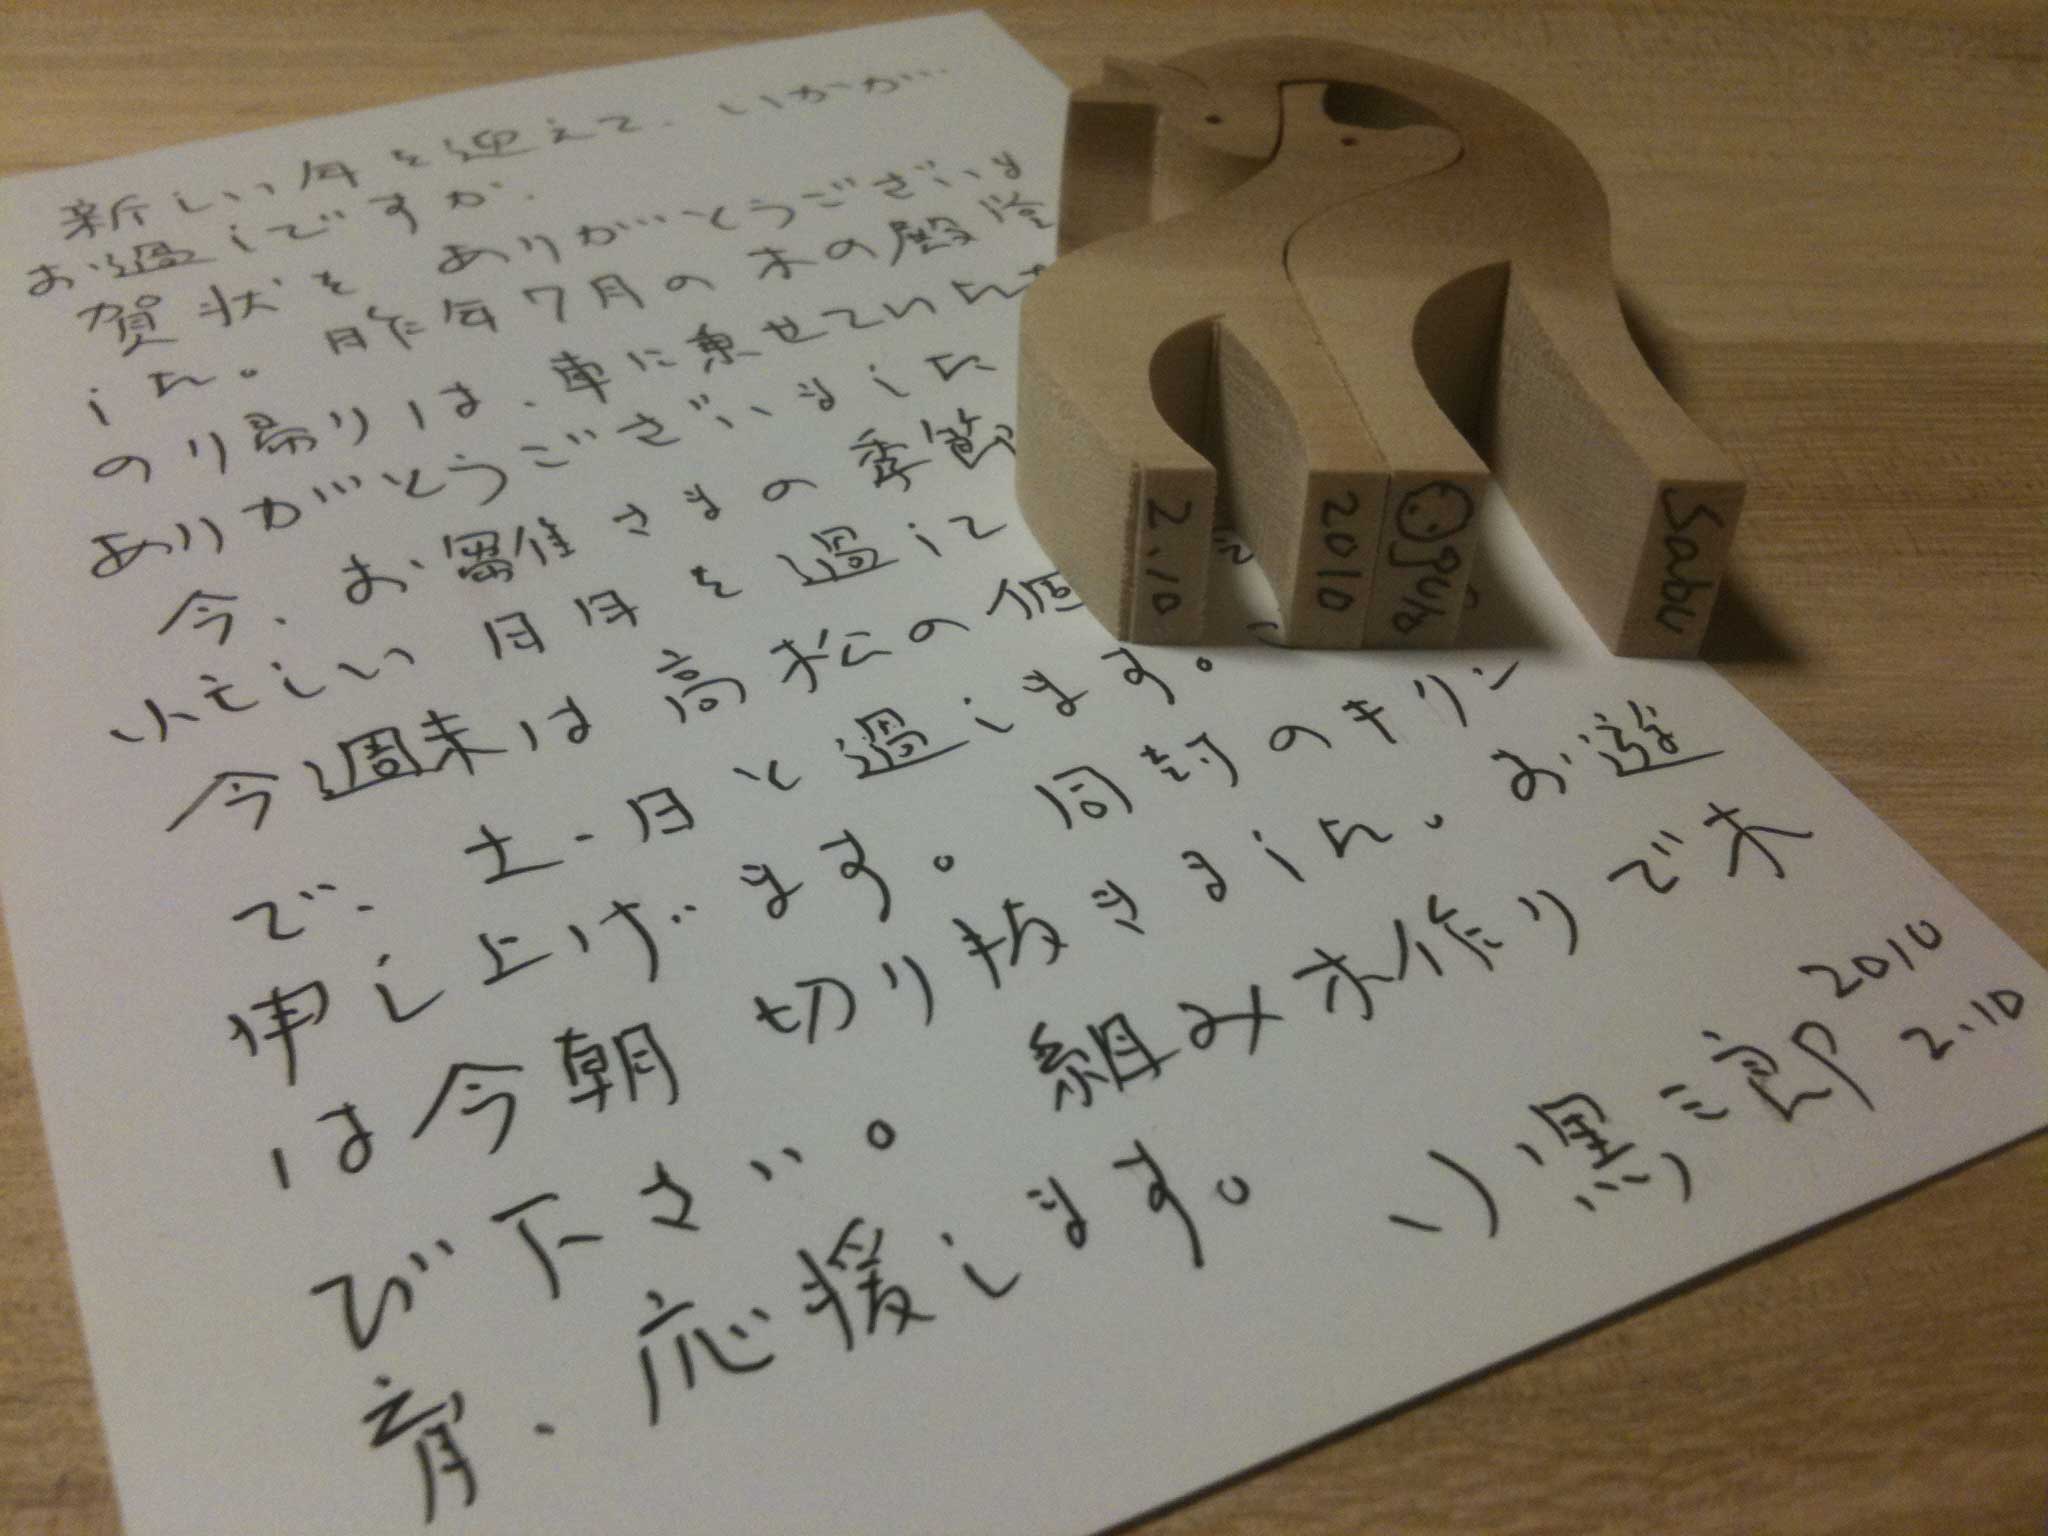 新しい年を迎えて、いかが
お過しですか。
賀状を ありがとうございま
した。昨年7月の木の殿堂
のり帰りは、車に乗せていただ
ありがとうございました
今、お雛さまの季節
忙しい日日を過して
今週末は高松の個
で、土・日と過します。
申し上げます。同封のキリン
は今朝 切り抜きました。お遊
び下さい。組み木作りで木
育、応援します。
小黒三郎 2010
2.10
2.10
2010
Oguro
Sabu